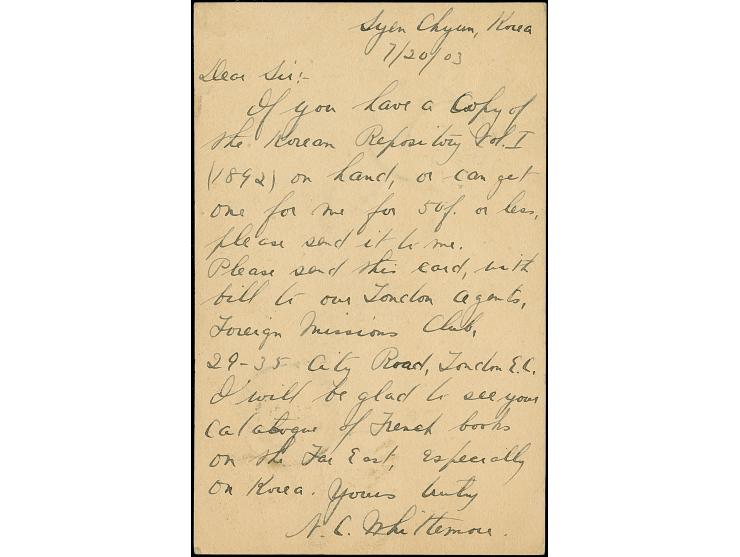 Syen Chyun, Korea
7/20/03
Dear Sir:-
If you have a Copy of
the Korean Repository Vol. I
(1892) on hand, or can get
one for me for 50f. or less,
please send it to me.
Please send this card, with
bill to our London agents,
Foreign Missions Club,
29-35 City Road, London E.C.
I will be glad to see your
catalogue of French books
on the Far East, especially
on Korea. Yours truly
N. C. Whittemore.